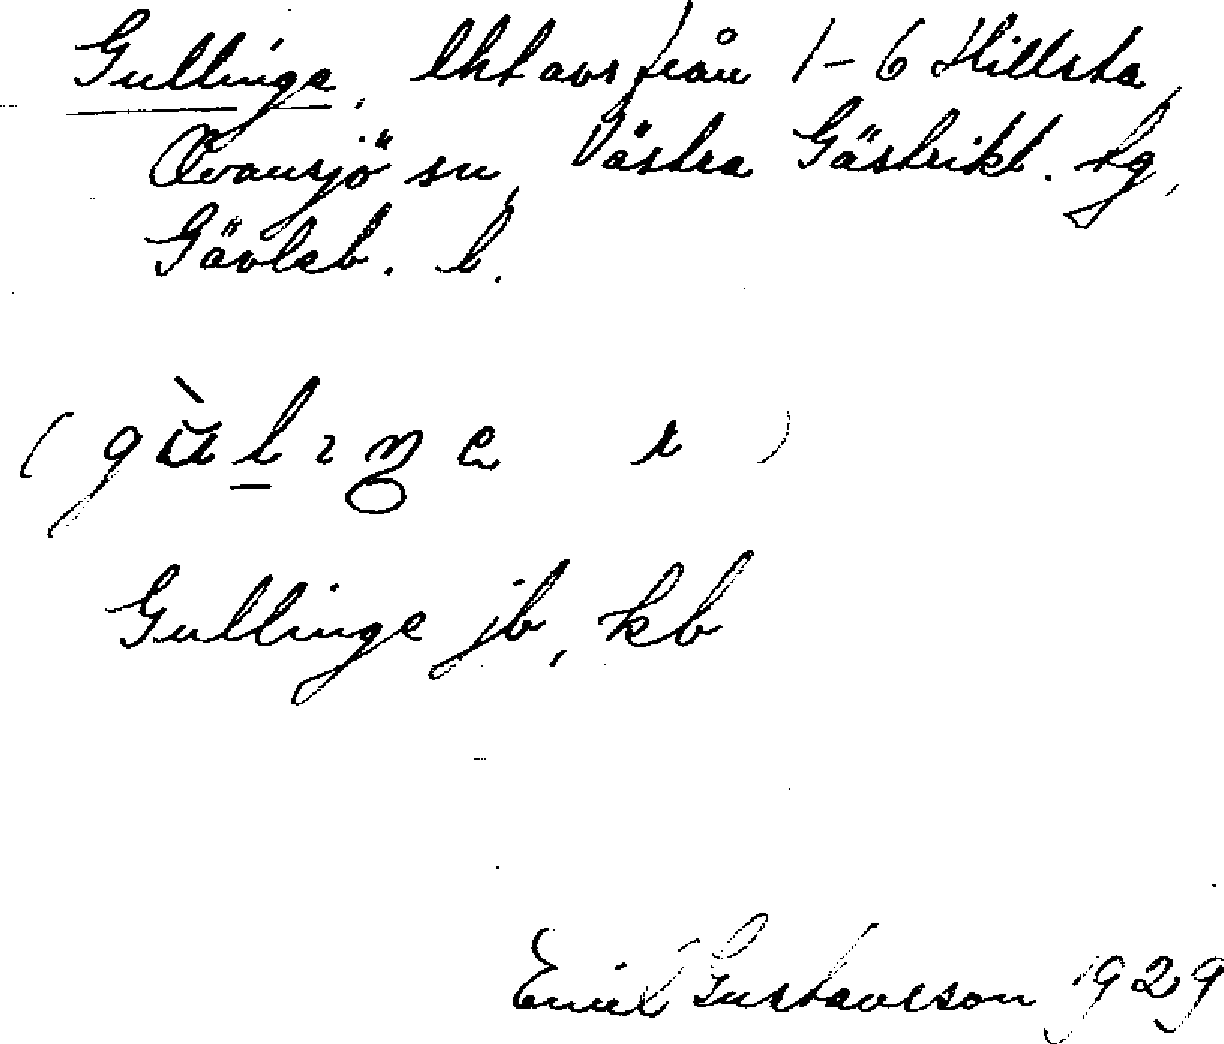 Gullinge, lht avs från 1-6 Hillsta,
Ovansjö sn, Västra Gästrikl. tg,
Gävleb. l.
Gullinge jb, kb
Emil Gustavsson 1929